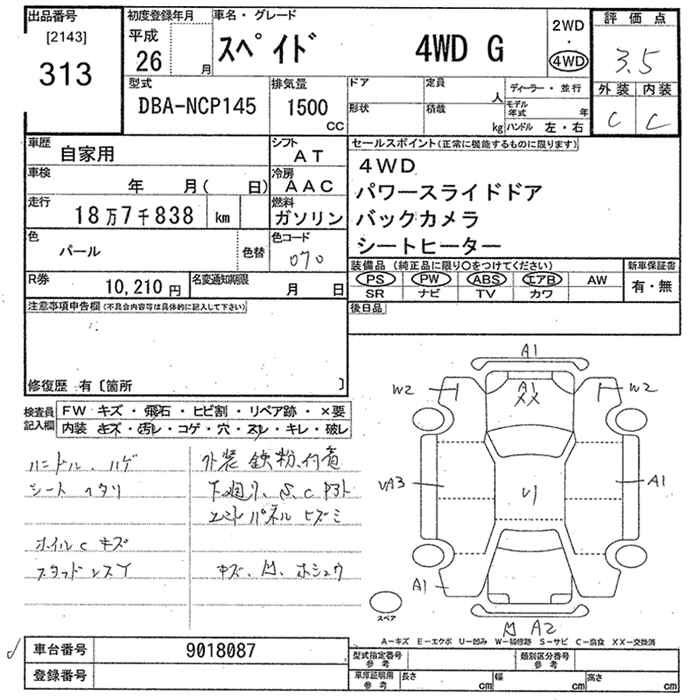 出品番号 初度登録年月 車名・グレード 評価点
[2143] 平成 2WD
313 26 月 スペイド 4WD G ・ 3.5
4WD
型式 排気量 ドア 定員 ディーラー・並行 外装 内装
DBA-NCP145 1500 人 モデル年式 年
形状 積載 C C
CC kg ハンドル 左・右
車歴 シフト セールスポイント(正常に機能するものに限ります)
自家用 AT 4WD
車検 冷房 パワースライドドア
年 月( 日) AAC
走行 燃料 バックカメラ
18万7千838 km ガソリン
色 色コード シートヒーター
パール 色替 070
装備品(純正品に限り○をつけてください) 新車保証書
R券 名変通知期限 PS PW ABS エアB AW 有・無
10,210円 月 日 SR ナビ TV カワ
注意事項申告欄(不具合内容等は具体的に記入して下さい) 後日品
修復歴 有〔箇所 〕
検査員 FW キズ・飛石・ヒビ割・リペア跡・×要
記入欄 内装 キズ・汚レ・コゲ・穴・スレ・キレ・破レ
ハンドル、ハゲ 外装 鉄粉付着
シート ヘタリ 下廻り、S、C
パネル ヒズミ
ホイルC キズ
スタッドレスT キズ、凹、ホシュウ
A1
W2 A1 XX W2
A3 U1 A1
A1
スペア
A2
A-キズ E-エクボ U-凹み W-補修跡 S-サビ C-腐食 XX-交換済
車台番号 9018087 型式指定番号 参考 類別区分番号 参考
登録番号 車庫証明用 参考 長さ cm 幅 cm 高さ cm